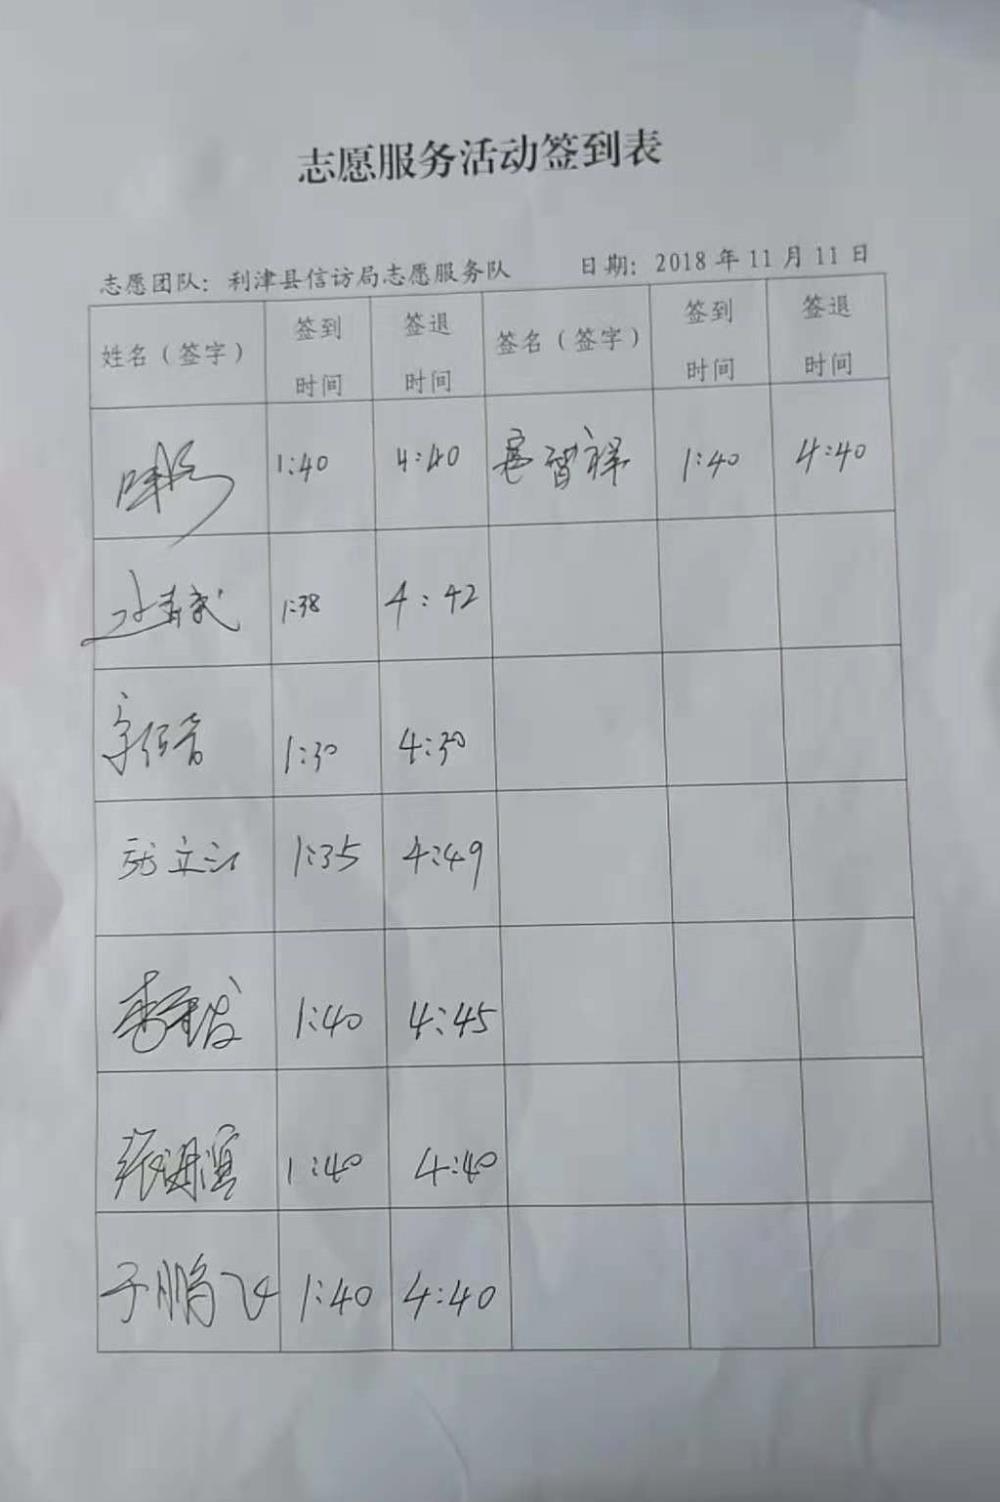 志愿服务活动签到表
志愿团队：利津县信访局志愿服务队 日期：2018年11月11日
姓名（签字） 签到时间 签退时间 签名（签字） 签到时间 签退时间
1:40 4:40 智祥 1:40 4:40
1:38 4:42
1:30 4:30
立江 1:35 4:49
1:40 4:45
张海滨 1:40 4:40
于鹏飞 1:40 4:40